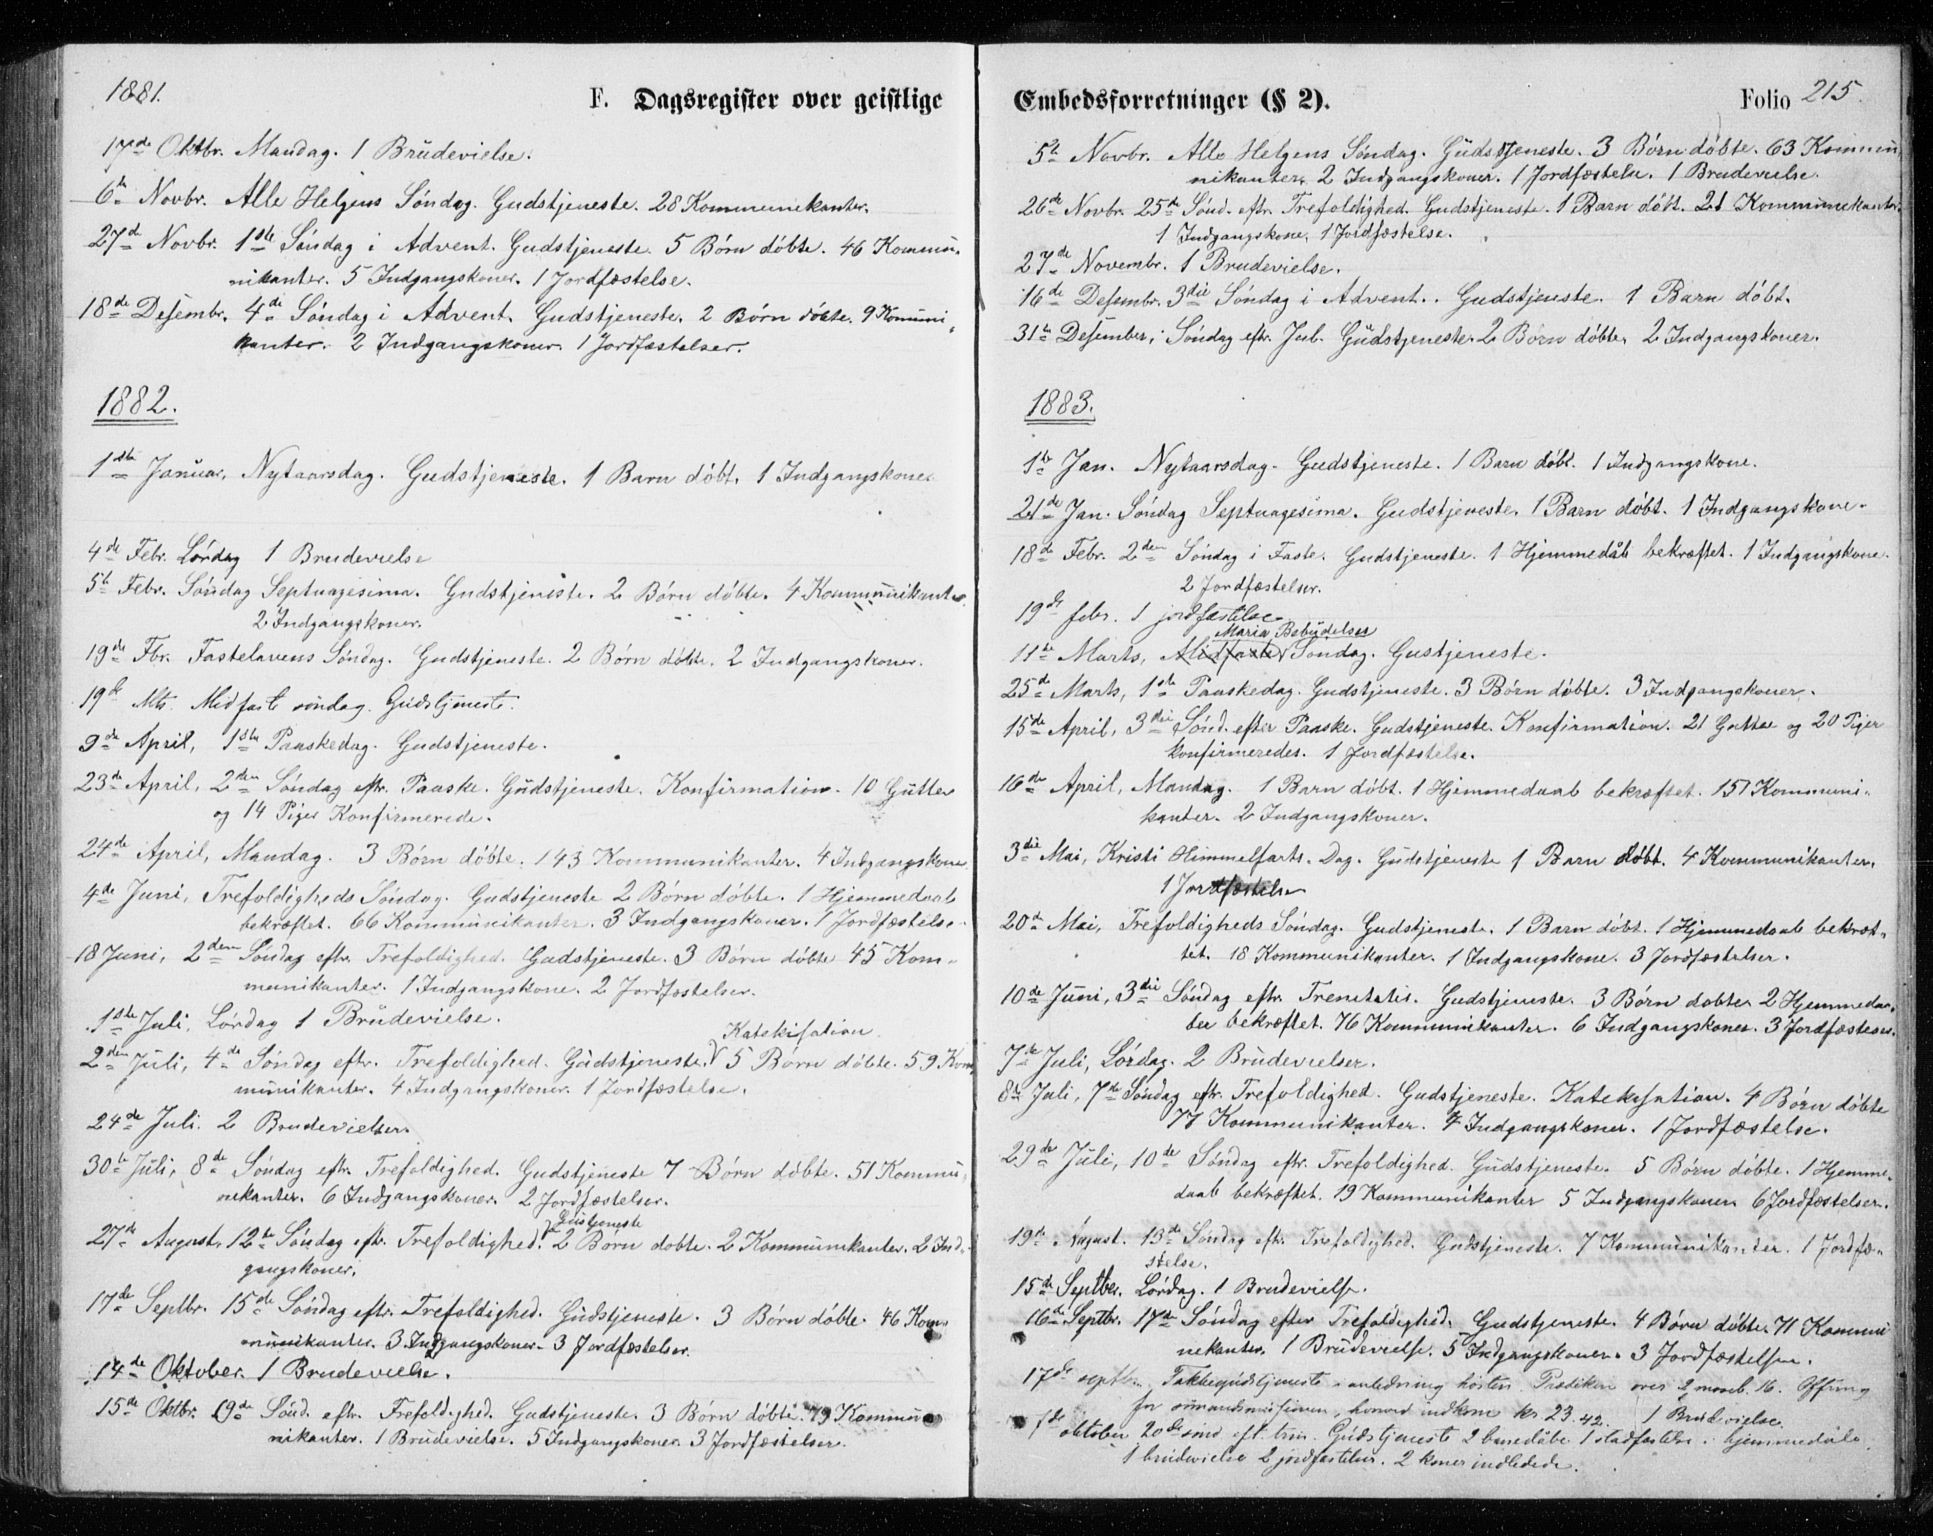 1881.
F. Dagsregister over geistlige
17de Oktbr. Mandag. 1 Brudevielse.
6te Novbr. Alle Helgens Söndag. Gudstjeneste. 28 Kommunikanter.
27de Novbr. 1ste Söndag i Advent. Gudstjeneste. 5 Börn döbte. 46 Kommu-
nikanter. 5 Indgangskoner. 1 Jordfæstelse.
18de Desembr. 4de Söndag i Advent. Gudstjeneste. 2 Börn döbte. 9 Komuni-
kanter. 2 Indgangskoner. 1 Jordfæstelser.
1882.
1ste Januar, Nytaarsdag. Gudstjeneste. 1 Barn döbt. 1 Indgangskone.
4de Febr. Lördag 1 Brudevielse
5te Febr. Söndag Septuagesima. Gudstjeneste. 2 Börn döbte. 4 Kommunikanter.
2 Indgangskoner.
19de Fbr. Fastelavens Söndag. Gudstjeneste. 2 Börn döbte. 2 Indgangskoner.
19de Mts. Midfaste söndag. Gudstjeneste.
9de April, 1ste Paaskedag. Gudstjeneste.
23de April, 2den Söndag eftr. Paaske. Gudstjeneste. Konfirmation. 10 Gutter
og 14 Piger Konfirmerede.
24de April, Mandag. 3 Börn döbte. 143 Kommunikanter. 4 Indgangskoner
4de Juni, Trefoldigheds Söndag. Gudstjeneste 2 Börn döbte. 1 Hjemmedaab
bekræftet. 66 Kommunikanter. 3 Indgangskoner. 1 Jordfæstelse.
18 Juni, 2den Söndag eftr. Trefoldighed. Gudstjeneste. 3 Börn döbte 45 Kom-
munikanter. 1 Indgangskone. 2 Jordfæstelser.
1ste Juli, Lördag 1 Brudevielse.
Katekisation
2den Juli, 4de Söndag eftr. Trefoldighed. Gudstjeneste. V 5 Börn döbte. 59 Kom-
munikanter. 4 Indgangskoner. 1 Jordfæstelse.
24de Juli. 2 Brudevielser.
30te Juli, 8de Söndag eftr. Trefoldighed. Gudstjeneste 7 Börn döbte. 51 Kommu-
nikanter. 6 Indgangskoner. 2 Jordfæstelser.
Gustjeneste
27de August, 12te Söndag eftr. Trefoldighed. 2 Börn dobte. 2 Kommunikanter. 2 Ind-
gangskoner.
17de Septbr. 15de Söndag eftr. Trefoldighed. Gudstjeneste. 3 Börn döbte. 46 Kom-
munikanter. 3 Indgangskoner. 3 Jordfæstelser.
14de Oktober. 1 Brudevielse.
15de Oktbr. 19de Sönd. eftr. Trefoldighed. Gudstjeneste. 3 Börn döbte. 49 Kommu-
nikanter. 1 Brudevielse. 5 Indgangskoner. 3 Jordfæstelser.
Embedsforretninger (§ 2).
Folio 215
5te Novbr. Alle Helgens Söndag. Gudstjeneste. 3 Börn döbte. 63 Kommu-
nikanter. 2 Indgangskoner. 1 Jordfæsteln. 1 Brudevielse.
26de Novbr. 25de Sönd. eftr. Trefoldighed. Gudstjeneste. 1 Barn döbt. 21 Kommunikanter.
1 Indgangskone. 1 Jordfæstelse.
27de Novembr. 1 Brudevielse.
16de Desembr. 3die Söndag i Advent. Gudstjeneste. 1 Barn döbt.
31te Desember, Söndag eftr. Jul. Gudstjeneste 2 Börn döbte. 2 Indgangskoner.
1883.
1ste Jan. Nytaarsdag. Gudstjeneste. 1 Barn döbt. 1 Indgangskone.
21de Jan. Söndag Septuagesima. Gudstjeneste. 1 Barn döbt. 1 Indgangskone.
18de Febr. 2den Söndag i Faste. Gudstjeneste. 1 Hjemmedåb bekræftet. 1 Indgangskone.
2 Jordfæstelser.
19de febr. 1 jordfæstelse
Maria Bebudelses
11te Marts, Midfaste Söndag. Gustjeneste.
25de Marts, 1ste Paaskedag. Gudstjeneste. 3 Börn döbte. 3 Indgangskoner.
15de April, 3die Sönd. efter Paaske. Gudstjeneste. Konfirmation. 21 Gutter og 20 Piger
konfirmeredes. 1 Jordfæstelse.
16de April, Mandag. 1 Barn döbt. 1 Hjemmedaab bekræftet. 151 Kommuni-
kanter. 2 Indgangskoner.
3die Mai, Kristi Himmelfarts. Dag. Gudstjeneste 1 Barn döbt. 4 Kommunikanter.
1 Jordfæstelse
20de Mai, Trefoldigheds Söndag. Gudstjeneste. 1 Barn döbt. 1 Hjemmedaab bekræf-
tet. 18 Kommunikanter. 1 Indgangskone. 3 Jordfæstelser.
10de Juni, 3die Söndag eftr. Trenitatis. Gudstjeneste. 3 Börn dobte 2 Hjemmedaa-
ber bekræftet. 76 Kommunikanter. 6 Indgangskoner. 3 Jordfæstelser.
7de Juli, Lördag. 2 Brudevielser.
8de Juli, 7de Söndag eftr. Trefoldighed. Gudstjeneste. Katekisation. 4 Börn döbte
77 Kommunikanter. 4 Indgangskoner. 1 Jordfæstelse.
29de Juli, 10de Söndag eftr. Trefoldighed. Gudstjeneste. 5 Börn döbte. 1 Hjemme-
daab bekræftet. 19 Kommunikanter 5 Indgangskoner 6 Jordfæstelser.
19de August. 13de Söndag eftr. Trefoldighed. Gudstjeneste. 7 Kommunikanter. 1 Jordfæ-
stelse.
15de Septber. Lördag. 1 Brudevielse.
16de Septbr. 17de Söndag efter Trefoldighed. Gudstjeneste. 4 Börn döbte. 71 Kommu-
nikanter. 1 Brudevielse. 5 Indgangskoner. 3 Jordfæstelser.
17de septbr. Takkegudstjeneste i anledning hösten. Prædiken over 2 moseb. 16. Offring
for sömandsmissionen, hvorved indkom kr 23.42. 1 Brudevielse
7de oktober 20de sönd eft. trin. Gudstjeneste 2 barnedåbe 1 stadfæstelse hjemmedåb.
1 brudevielse 2 jordfæstelser. 2 koner indledede.